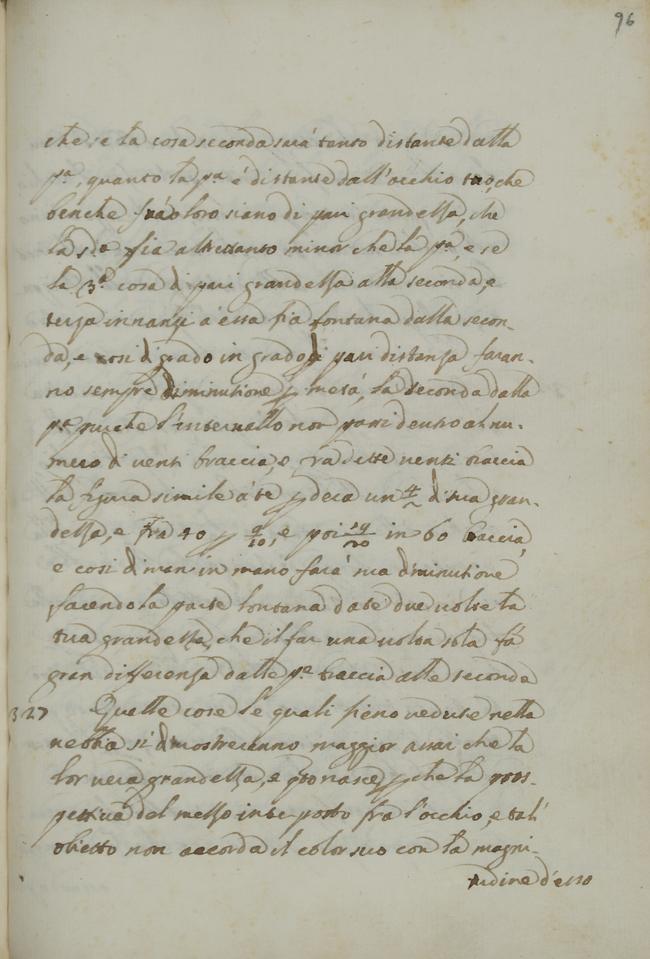 96
che se la cosa seconda sarà tanto distante dalla
pª, quanto la pª é distante dall'occhio tuo, che
benche frà loro siano di pari grandezza, che
la sda fia altrettanto minor che la pª, e se
la 3ª cosa di pari grandezza alla seconda, e
terza innanzi à essa fia lontana dalla secon-
da, e cosi di grado in grado di pari distanza faran-
no sempre diminutione p metà, la seconda dalla
pª purche l'intervallo non passi dentro al nu-
mero di venti braccia, e frà dette venti braccia
la figura simile à te perderà un 4/~ di sua gran-
dezza, e frà 40 p 9/10, e poi 19/20 in 60 braccia,
e cosi di man in mano farà sua diminutione
facendo la parte lontana da te due volte la
tua grandezza, che il far una volta sola fà
gran differenza dalle pe braccia alle seconde
327 Quelle cose le quali fieno vedute nella
nebbia si dimostreranno maggior assai che la
lor vera grandezza, e qto nasce p che la pros-
pettiva del mezzo interposto fra l'occhio, e tal'
obietto non accorda il color suo con la magni-
tudine d'esso